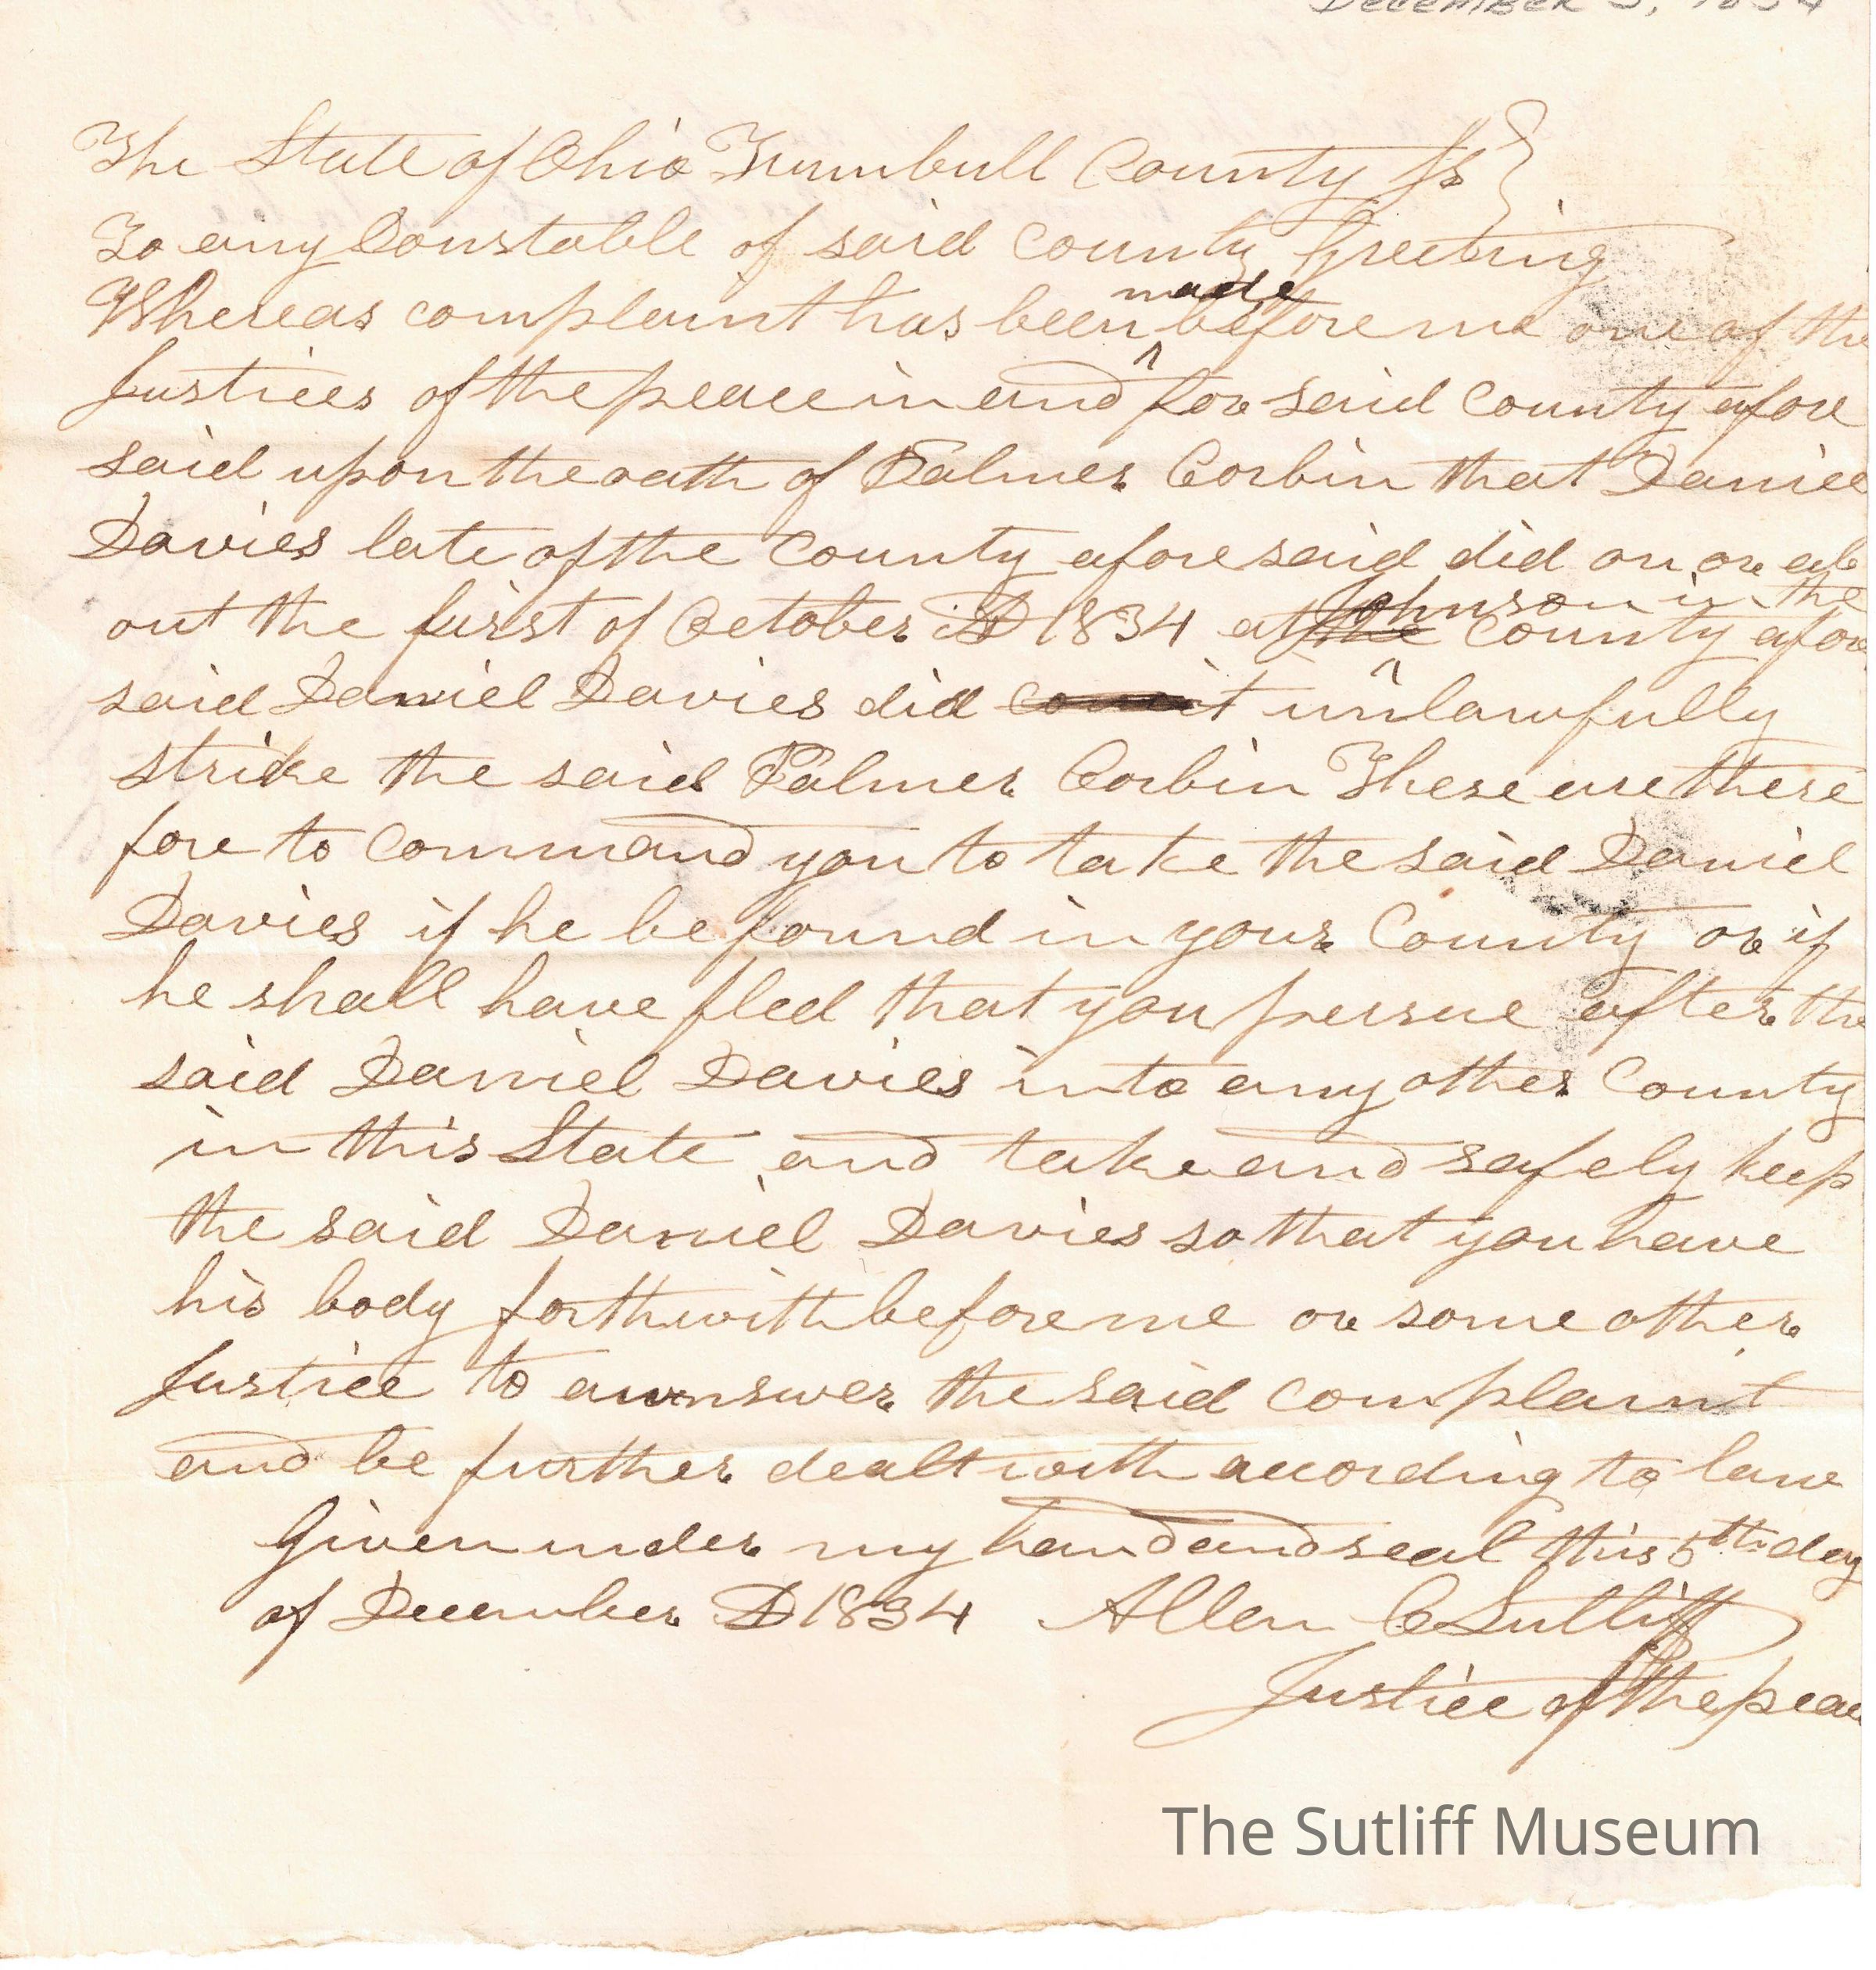 December 5, 1834
The State of Ohio Trumbull County Ss }
To any Constable of said County Greeting
Whereas complaint has been made before me one of the
Justices of the peace in and for said County afore
said upon the oath of Palmer Corbin that Daniel
Davies late of the County aforesaid did on or ab
out the first of October AD 1834 at the Johnson in the County afore
said Daniel Davies did comit unlawfully
strike the said Palmer Corbin These are there
fore to command you to take the said Daniel
Davies if he be found in your County or if
he shall have fled that you persue after the
said Daniel Davies into any other County
in this State and take and safely keep
the said Daniel Davies so that you have
his body forthwith before me or some other
Justice to awnswer the said complaint
and be further dealt with according to law
Given under my hand and seal this 5th day
of December AD 1834 Allen C Sutliff
Justice of the peace
The Sutliff Museum